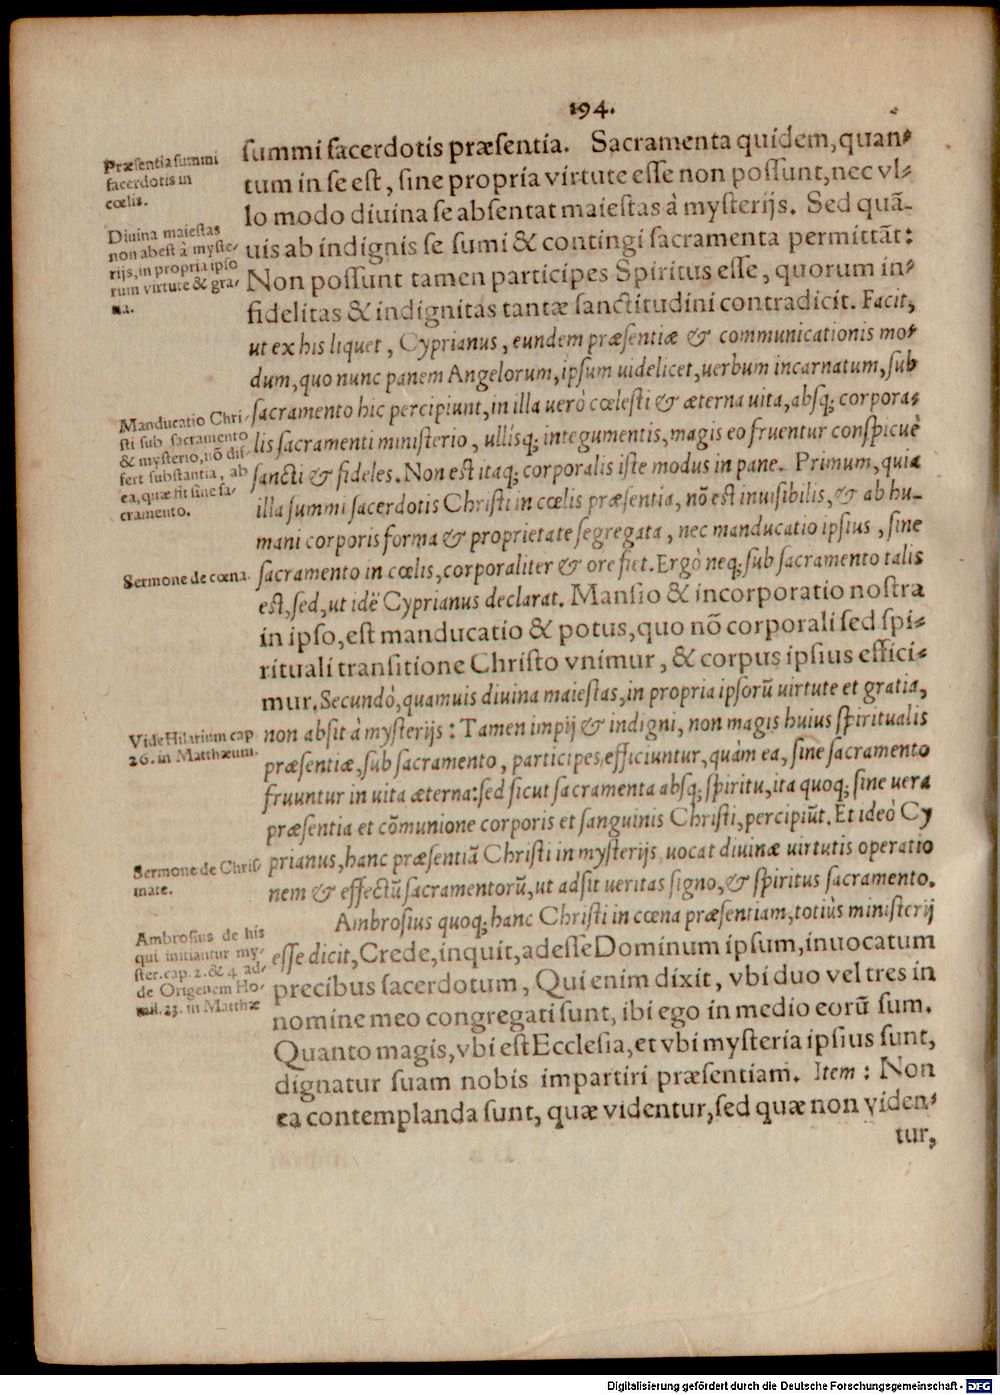 194.
summi sacerdotis præsentia. Sacramenta quidem, quan-
tum in se est, sine propria virtute esse non possunt, nec vl-
lo modo diuina se absentat maiestas à mysterijs. Sed quā-
uis ab indignis se sumi & contingi sacramenta permittāt:
Non possunt tamen participes Spiritus esse, quorum in-
fidelitas & indignitas tantæ sanctitudini contradicit. Facit,
ut ex his liquet, Cyprianus, eundem præsentiæ & communicationis mo-
dum, quo nunc panem Angelorum, ipsum uidelicet, uerbum incarnatum, sub
sacramento hic percipiunt, in illa uerò cœlesti & æterna uita, absq; corpora-
lis sacramenti ministerio, ullisq; integumentis, magis eo fruentur conspicuè
sancti & fideles. Non est itaq; corporalis iste modus in pane. Primum, quia
illa summi sacerdotis Christi in cœlis præsentia, nō est inuisibilis, & ab hu-
mani corporis forma & proprietate segregata, nec manducatio ipsius, sine
sacramento in cœlis, corporaliter & ore fiet. Ergò neq; sub sacramento talis
est, sed, ut idē Cyprianus declarat. Mansio & incorporatio nostra
in ipso, est manducatio & potus, quo nō corporali sed spi-
rituali transitione Christo vnimur, & corpus ipsius effici-
mur. Secundò, quamuis diuina maiestas, in propria ipsorū uirtute et gratia,
non absit à mysterijs: Tamen impij & indigni, non magis huius spiritualis
præsentiæ, sub sacramento, participes efficiuntur, quàm ea, sine sacramento
fruuntur in uita æterna: sed sicut sacramenta absq; spiritu, ita quoq; sine uera
præsentia et cōmunione corporis et sanguinis Christi, percipiūt. Et ideò Cy
prianus, hanc præsentiā Christi in mysterijs uocat diuinæ uirtutis operatio
nem & effectū sacramentorū, ut adsit ueritas signo, & spiritus sacramento.
Ambrosius quoq; hanc Christi in cœna præsentiam, totiùs ministerij
esse dicit, Crede, inquit, adesse Dominum ipsum, inuocatum
precibus sacerdotum, Qui enim dixit, vbi duo vel tres in
nomine meo congregati sunt, ibi ego in medio eorū sum.
Quanto magis, vbi est Ecclesia, et vbi mysteria ipsius sunt,
dignatur suam nobis impartiri præsentiam. Item: Non
ea contemplanda sunt, quæ videntur, sed quæ non viden-
tur,
Præsentia summi
sacerdotis in
cœlis.
Diuina maiestas
non abest à myste-
rijs, in propria ipso
rum virtute & gra-
tia.
Manducatio Chri-
sti sub sacramento
& mysterio, nō dif-
fert substantia, ab
ea, quæ fit sine sa-
cramento.
Sermone de cœna.
Vide Hilarium cap
26. in Matthæum.
Sermone de Chris-
mate.
Ambrosius de his
qui initiantur my-
ster. cap. 2. & 4 ad-
de Origenem Ho-
mil. 23. in Matthæ
Digitalisierung gefördert durch die Deutsche Forschungsgemeinschaft - DFG